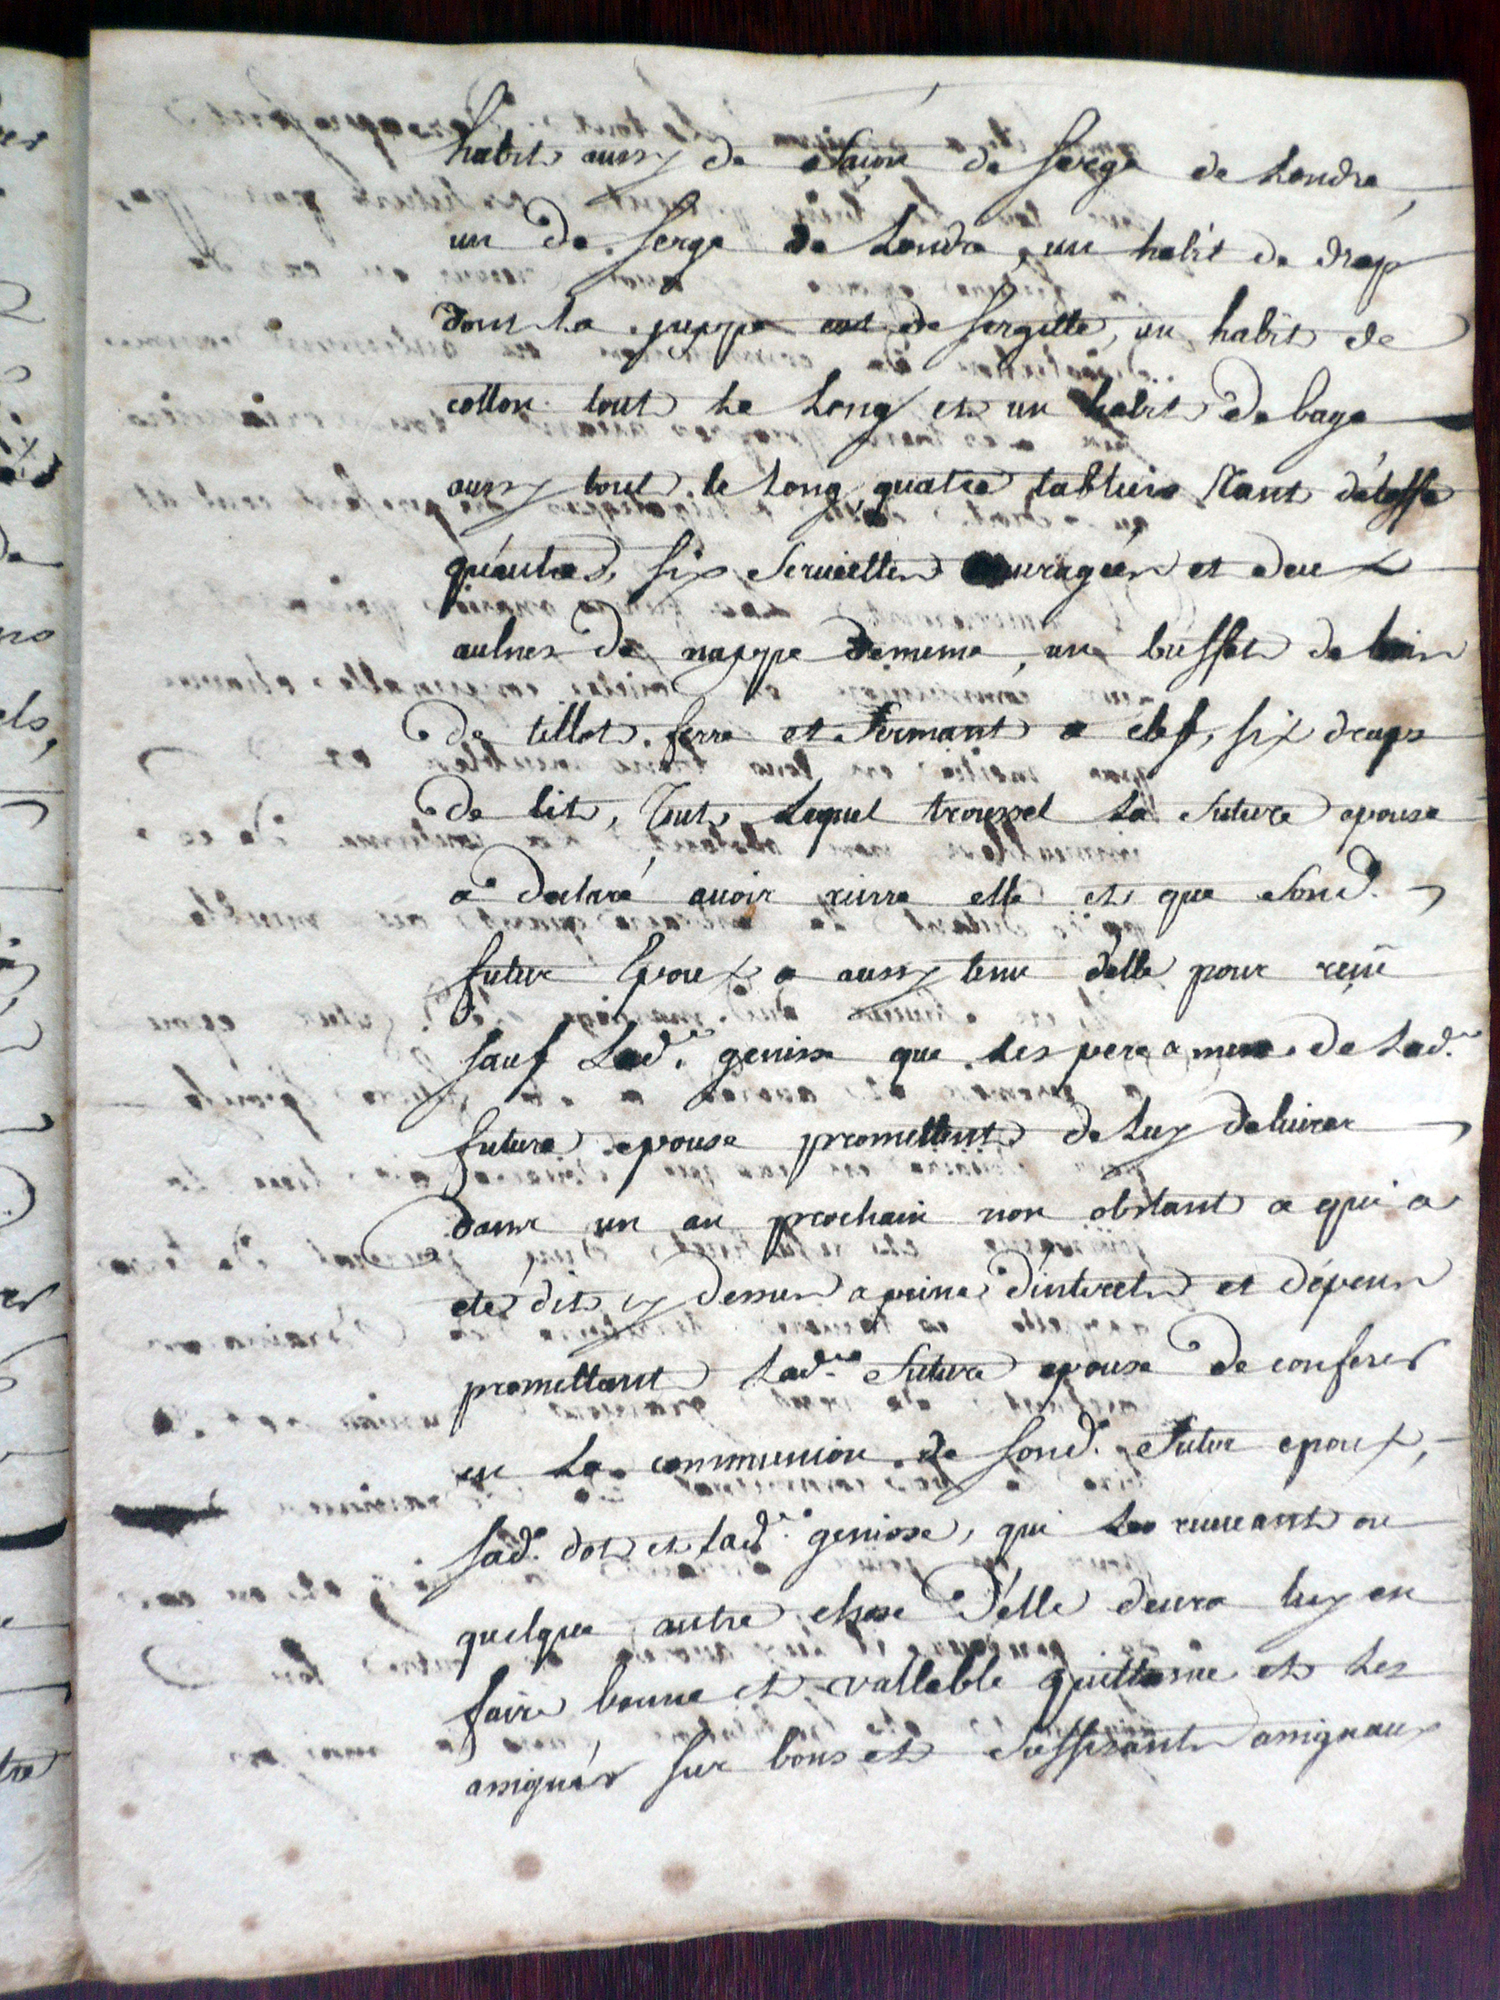 habit aussy de de serge de Londre,
un de serge de Londre, un habit de drap
dont la juppe est de sergette, un habit de
cotton tout le long et un habit de bage
aussy tout le long, quatre tabliers tant d'étoffe
qu'autres, six serviettes ouvragées et deux
aulnes de nappe de meme, un buffet de bois
de tillot ferré et fermant a clef, six draps
de lit, Tout Lequel troussel la future epouse
a declaré avoir riere elle et que sond.
futur Epoux a aussy tenu d'elle pour reçu
sauf Lad.e genisse que les pere a mere de Lad.e
future epouse promettent de Luy delivrer
dans un an prochain non obstant a qui a
eté dit cy dessus a peine d'interets et dépens
promettant Lad.e future epouse de conferer
en la communion de sond. futur epoux,
sad.e dot et lad.e genisse, qui les recevant ou
quelque autre chose d'elle devra luy en
faire bonne et vallable quittance et les
assigner sur bons et suffisants assignaux